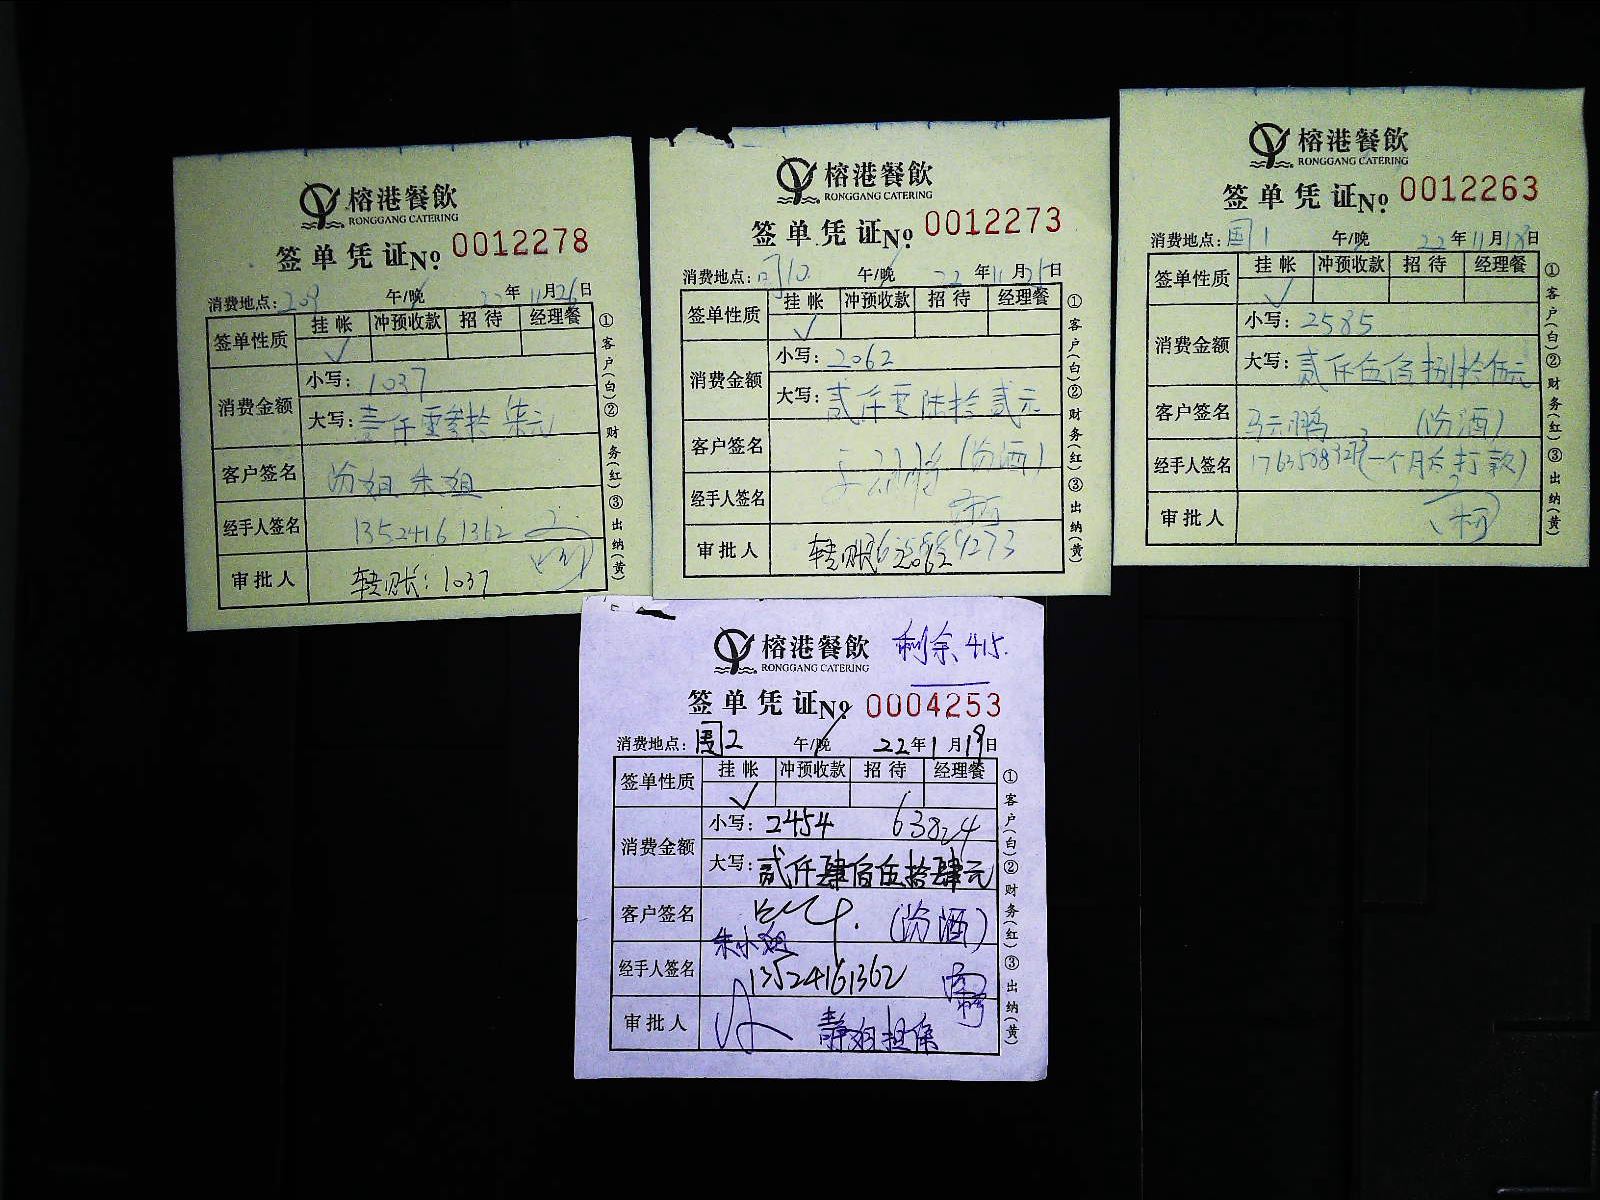 榕港餐飲
RONGGANG CATERING
签单凭证 No. 0012278
消费地点: 209 午/晚 22年11月26日
签单性质 挂帐 冲预收款 招待 经理餐
✓
消费金额 小写: 1037
大写: 壹仟零叁拾柒元
客户签名 汾姐 朱姐
经手人签名 13524161362
审批人 转账: 1037
①客户(白)②财务(红)③出纳(黄)
榕港餐飲
RONGGANG CATERING
签单凭证 No. 0012273
消费地点: 午/晚 22年11月25日
签单性质 挂帐 冲预收款 招待 经理餐
✓
消费金额 小写: 2062
大写: 贰仟零陆拾贰元
客户签名 (汾酒)
经手人签名
审批人 转账 2062
①客户(白)②财务(红)③出纳(黄)
榕港餐飲
RONGGANG CATERING
签单凭证 No. 0012263
消费地点: 国1 午/晚 22年11月18日
签单性质 挂帐 冲预收款 招待 经理餐
✓
消费金额 小写: 2585
大写: 贰仟伍佰捌拾伍元
客户签名 马云鹏 (汾酒)
经手人签名 (一个月后打款)
审批人
①客户(白)②财务(红)③出纳(黄)
榕港餐飲 剩余 415.
RONGGANG CATERING
签单凭证 No. 0004253
消费地点: 国2 午/晚 22年1月19日
签单性质 挂帐 冲预收款 招待 经理餐
✓
消费金额 小写: 2454 63824
大写: 贰仟肆佰伍拾肆元
客户签名 (汾酒)
朱小姐
经手人签名 13524161362
审批人 静姐担保
①客户(白)②财务(红)③出纳(黄)